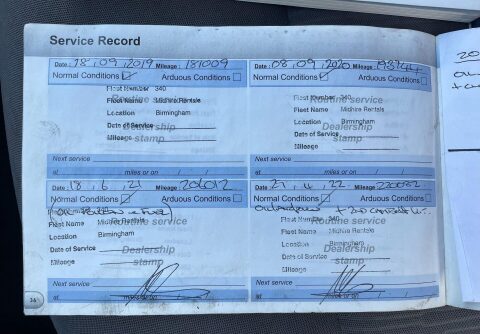 Service Record
Date : 18, 09, 2019 Mileage : 181009
Normal Conditions Arduous Conditions
Fleet Number 340
Routine service
Fleet Name Midhire Rentals
Location Birmingham
Dealership
Date of Service
stamp
Mileage
Next service
at miles or on / /
Date : 08, 09, 2020 Mileage :
Normal Conditions Arduous Conditions
Fleet Number 340
Routine service
Fleet Name Midhire Rentals
Location Birmingham
Dealership
Date of Service
stamp
Mileage
Next service
at miles or on / /
Date : 18, 6, 21 Mileage : 206012
Normal Conditions Arduous Conditions
Routine service
Fleet Name Midhire Rentals
Location Birmingham
Date of Service
Dealership
Mileage
stamp
Next service
at miles or on / /
Date : 27, 4, 22 Mileage :
Normal Conditions Arduous Conditions
Fleet Number 340
Routine service
Fleet Name Midhire Rentals
Location Birmingham
Dealership
Date of Service
stamp
Mileage
Next service
at miles or on / /